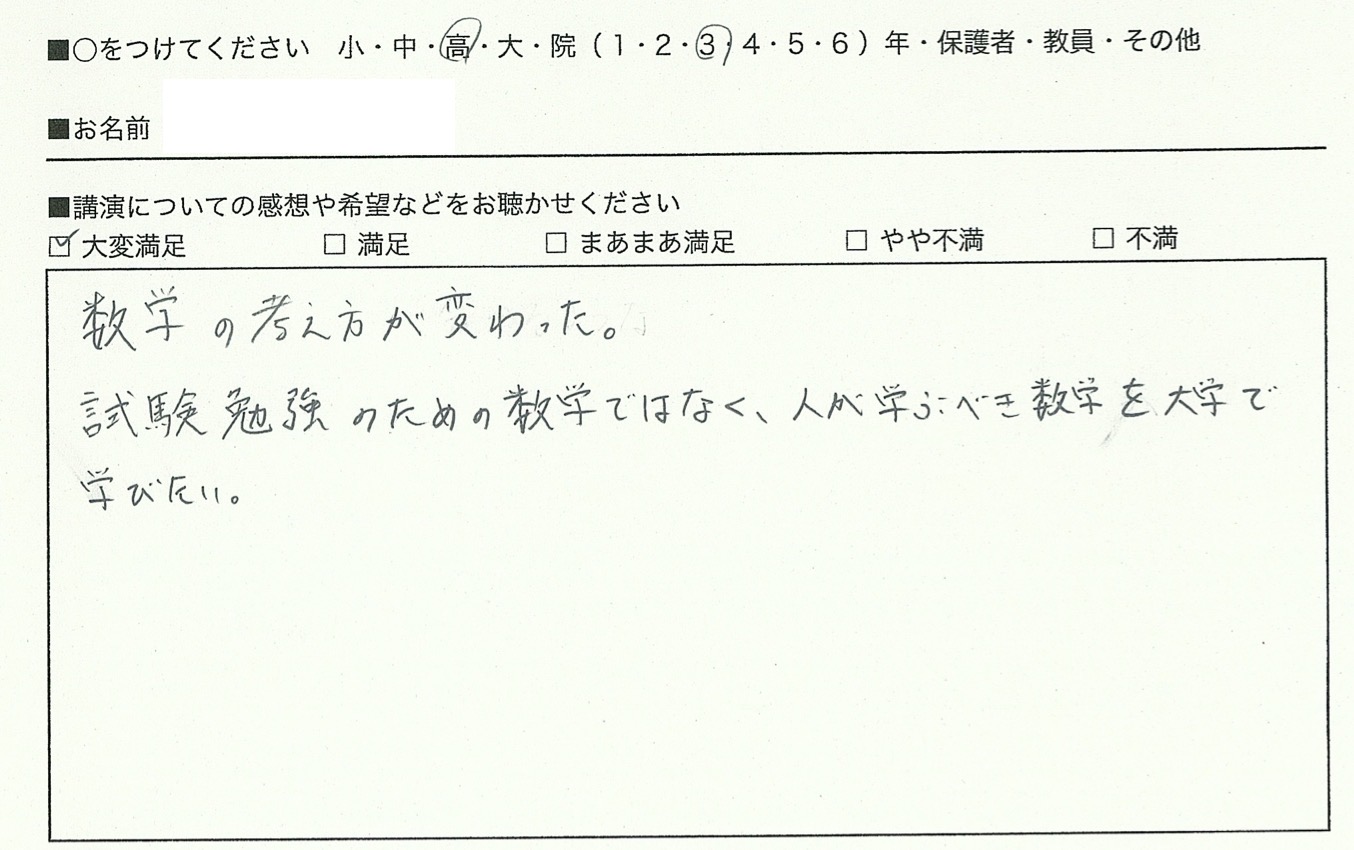 ■○をつけてください 小・中・高・大・院(1・2・3・4・5・6)年・保護者・教員・その他
■お名前
■講演についての感想や希望などをお聴かせください
☑ 大変満足 □ 満足 □ まあまあ満足 □ やや不満 □ 不満
数学の考え方が変わった。
試験勉強のための数学ではなく、人が学ぶべき数学を大学で
学びたい。